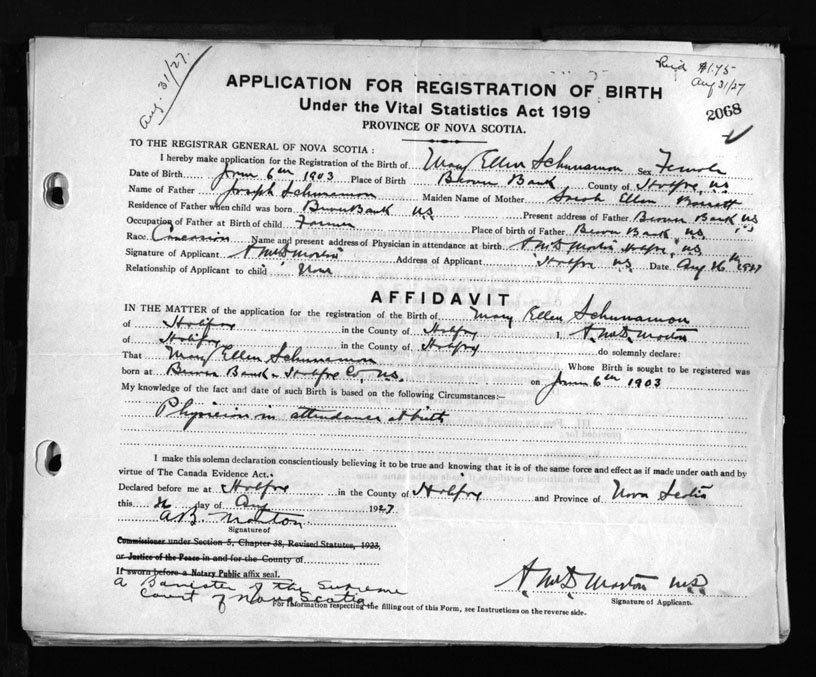 Aug. 31/27.
Paid $1.75
Aug 31/27
2068
APPLICATION FOR REGISTRATION OF BIRTH
Under the Vital Statistics Act 1919
PROVINCE OF NOVA SCOTIA.
TO THE REGISTRAR GENERAL OF NOVA SCOTIA :
I hereby make application for the Registration of the Birth of Mary Ellen Schunamon Sex Female
Date of Birth 6th 1903 Place of Birth Bank County of Halifax, N.S.
Name of Father Joseph Schunamon Maiden Name of Mother Sarah Ellen
Residence of Father when child was born Bank N.S. Present address of Father Bank N.S.
Occupation of Father at Birth of child Farmer Place of birth of Father Bank N.S.
Race Name and present address of Physician in attendance at birth A. McD Morton Halfx, N.S.
Signature of Applicant A McD Morton Address of Applicant Halfx N.S. Date Aug 26th 1927
Relationship of Applicant to child None
AFFIDAVIT
IN THE MATTER of the application for the registration of the Birth of Mary Ellen Schunamon
of Halifax in the County of Halifax I, A. McD. Morton
of Halifax in the County of Halifax do solemnly declare:
That Mary Ellen Schunamon Whose Birth is sought to be registered was
born at Bank Halfx Co, N.S. on 6th 1903
My knowledge of the fact and date of such Birth is based on the following Circumstances:—
Physician in attendance at birth
I make this solemn declaration conscientiously believing it to be true and knowing that it is of the same force and effect as if made under oath and by
virtue of The Canada Evidence Act.
Declared before me at Halifax in the County of Halifax and Province of Nova Scotia
this 26 day of Aug 1927
A.B. Morton
Signature of
Commissioner under Section 5, Chapter 38, Revised Statutes, 1923,
or Justice of the Peace in and for the County of
If sworn before a Notary Public affix seal.
A Barrister of the Supreme
Court of Nova Scotia
A. McD Morton M.D.
Signature of Applicant.
For information respecting the filling out of this Form, see Instructions on the reverse side.